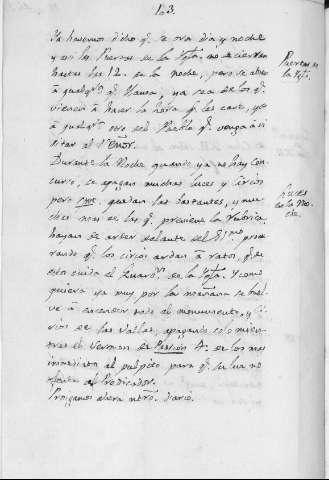 13.
Ya hasemos dicho q.e se ora dia y noche
y asi las Puertas de la Ygl.a no se cierran
hasta las 12. de la noche, pero se abre
â qualq.ra q.e llama, ya sea de los q.e
vienen â hacer la hora q.e les cave, ya
â qualq.ra otro del Pueblo q.e venga â vi
sitar al Señor.
Puertas de
la Ygl.a
Durante la Noche quando ya no hay con
curso, se apagan muchas luces y Cirios
pero quedan las bastantes, y mu
chas mas de las q.e previene la Rubrica
hayan de arder delante del S.mo procu
rando q.e los cirios ardan â ratos, q.e de
esto cuida el Guard.n de la Ygl.a Y como
quiera ya muy por la mañana se buel
ve â encender todo el monumento, y Ci
rios de las Vallas, apagando solo mien
tras el Sermon de Pasion los mas
inmediatos al pulpito para q.e su luz no
ofenda al Predicador.
Luces
de la No
che.
Prosigamos ahora nuestro diario.